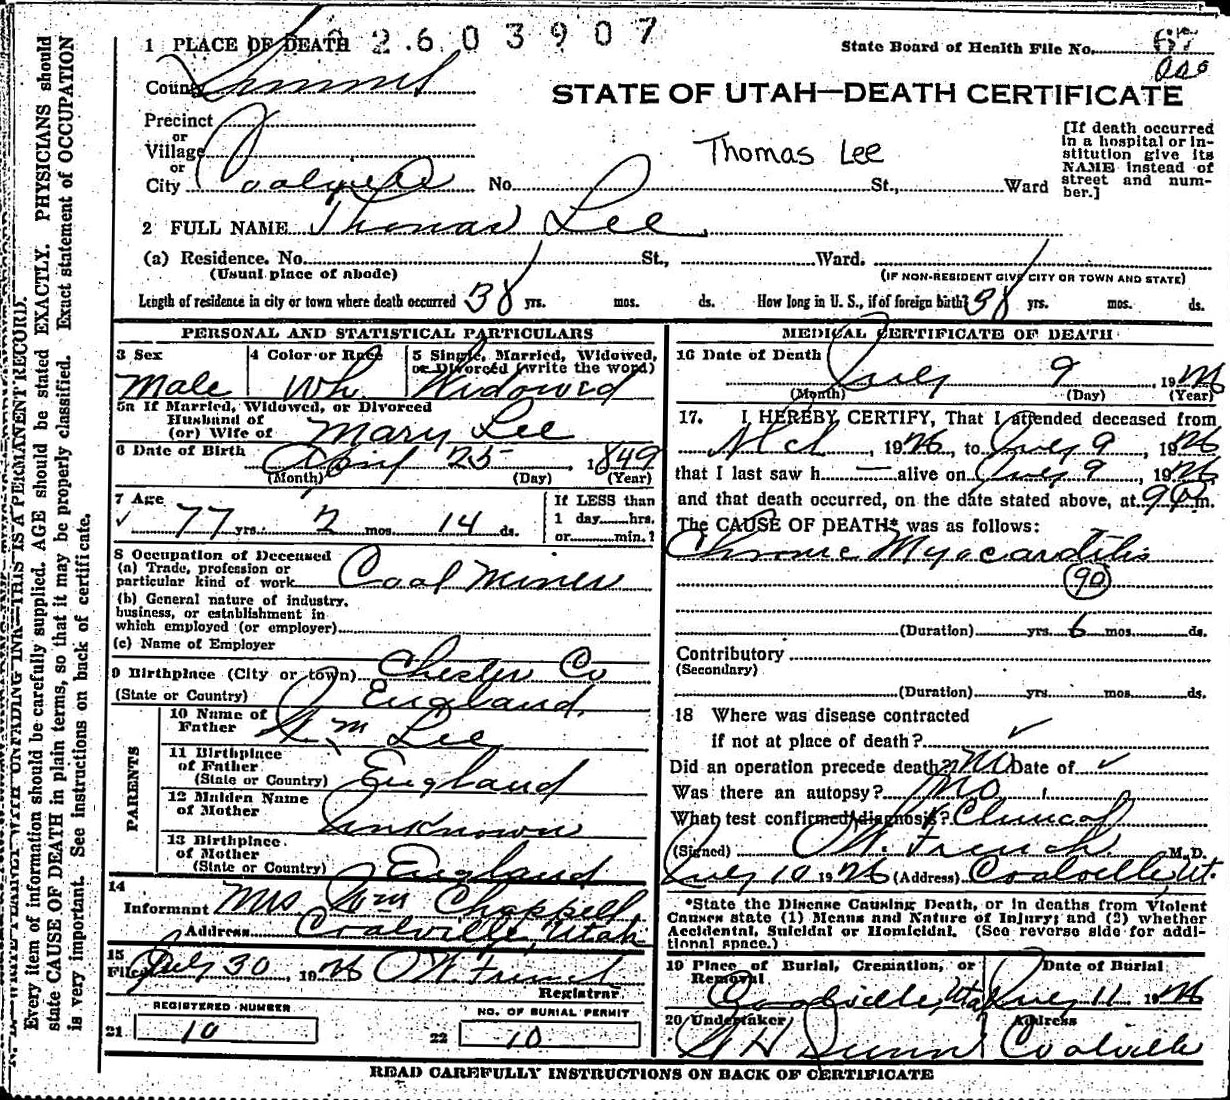 2603907
1 PLACE OF DEATH
State Board of Health File No.
County Summit
STATE OF UTAH—DEATH CERTIFICATE
Precinct
or
Village
or
City Coalville No. St., Ward
Thomas Lee
[If death occurred in a hospital or institution give its NAME instead of street and number.]
2 FULL NAME Thomas Lee
(a) Residence. No. St., Ward.
(Usual place of abode) (IF NON-RESIDENT GIVE CITY OR TOWN AND STATE)
Length of residence in city or town where death occurred 38 yrs. mos. ds. How long in U. S., if of foreign birth? 38 yrs. mos. ds.
PERSONAL AND STATISTICAL PARTICULARS
3 Sex 4 Color or Race 5 Single, Married, Widowed, or Divorced (write the word)
Male Wh Widowed
5a If Married, Widowed, or Divorced
Husband of
(or) Wife of Mary Lee
6 Date of Birth April 25 1849
(Month) (Day) (Year)
7 Age
77 yrs. 2 mos. 14 ds.
If LESS than
1 day hrs.
or min.?
8 Occupation of Deceased
(a) Trade, profession or
particular kind of work Coal Miner
(b) General nature of industry,
business, or establishment in
which employed (or employer)
(c) Name of Employer
9 Birthplace (City or town) Chester Co
(State or Country) England
PARENTS
10 Name of
Father Wm Lee
11 Birthplace
of Father
(State or Country) England
12 Maiden Name
of Mother Unknown
13 Birthplace
of Mother
(State or Country) England
14
Informant Mrs Wm Chappell
Address Coalville, Utah
15
Filed July 30, 1926 O W. French
Registrar
REGISTERED NUMBER
21 10
NO. OF BURIAL PERMIT
22 10
MEDICAL CERTIFICATE OF DEATH
16 Date of Death July 9, 1926
(Month) (Day) (Year)
17. I HEREBY CERTIFY, That I attended deceased from
Mch, 1926, to July 9, 1926
that I last saw h — alive on July 9, 1926
and that death occurred, on the date stated above, at 9 P.m.
The CAUSE OF DEATH* was as follows:
Chronic Myocarditis
90
(Duration) yrs. 6 mos. ds.
Contributory
(Secondary)
(Duration) yrs. mos. ds.
18 Where was disease contracted
if not at place of death?
Did an operation precede death? No Date of
Was there an autopsy? No
What test confirmed diagnosis? Clinical
(Signed) O W. French M.D.
July 10 1926 (Address) Coalville, Ut.
*State the Disease Causing Death, or in deaths from Violent
Causes state (1) Means and Nature of Injury; and (2) whether
Accidental, Suicidal or Homicidal. (See reverse side for addi-
tional space.)
19 Place of Burial, Cremation, or Removal Date of Burial
Coalville, Utah July 11 1926
20 Undertaker Address
Dunn Coalville
READ CAREFULLY INSTRUCTIONS ON BACK OF CERTIFICATE
THIS IS A PERMANENT RECORD.
Every item of information should be carefully supplied. AGE should be stated EXACTLY. PHYSICIANS should
state CAUSE OF DEATH in plain terms, so that it may be properly classified. Exact statement of OCCUPATION
is very important. See instructions on back of certificate.